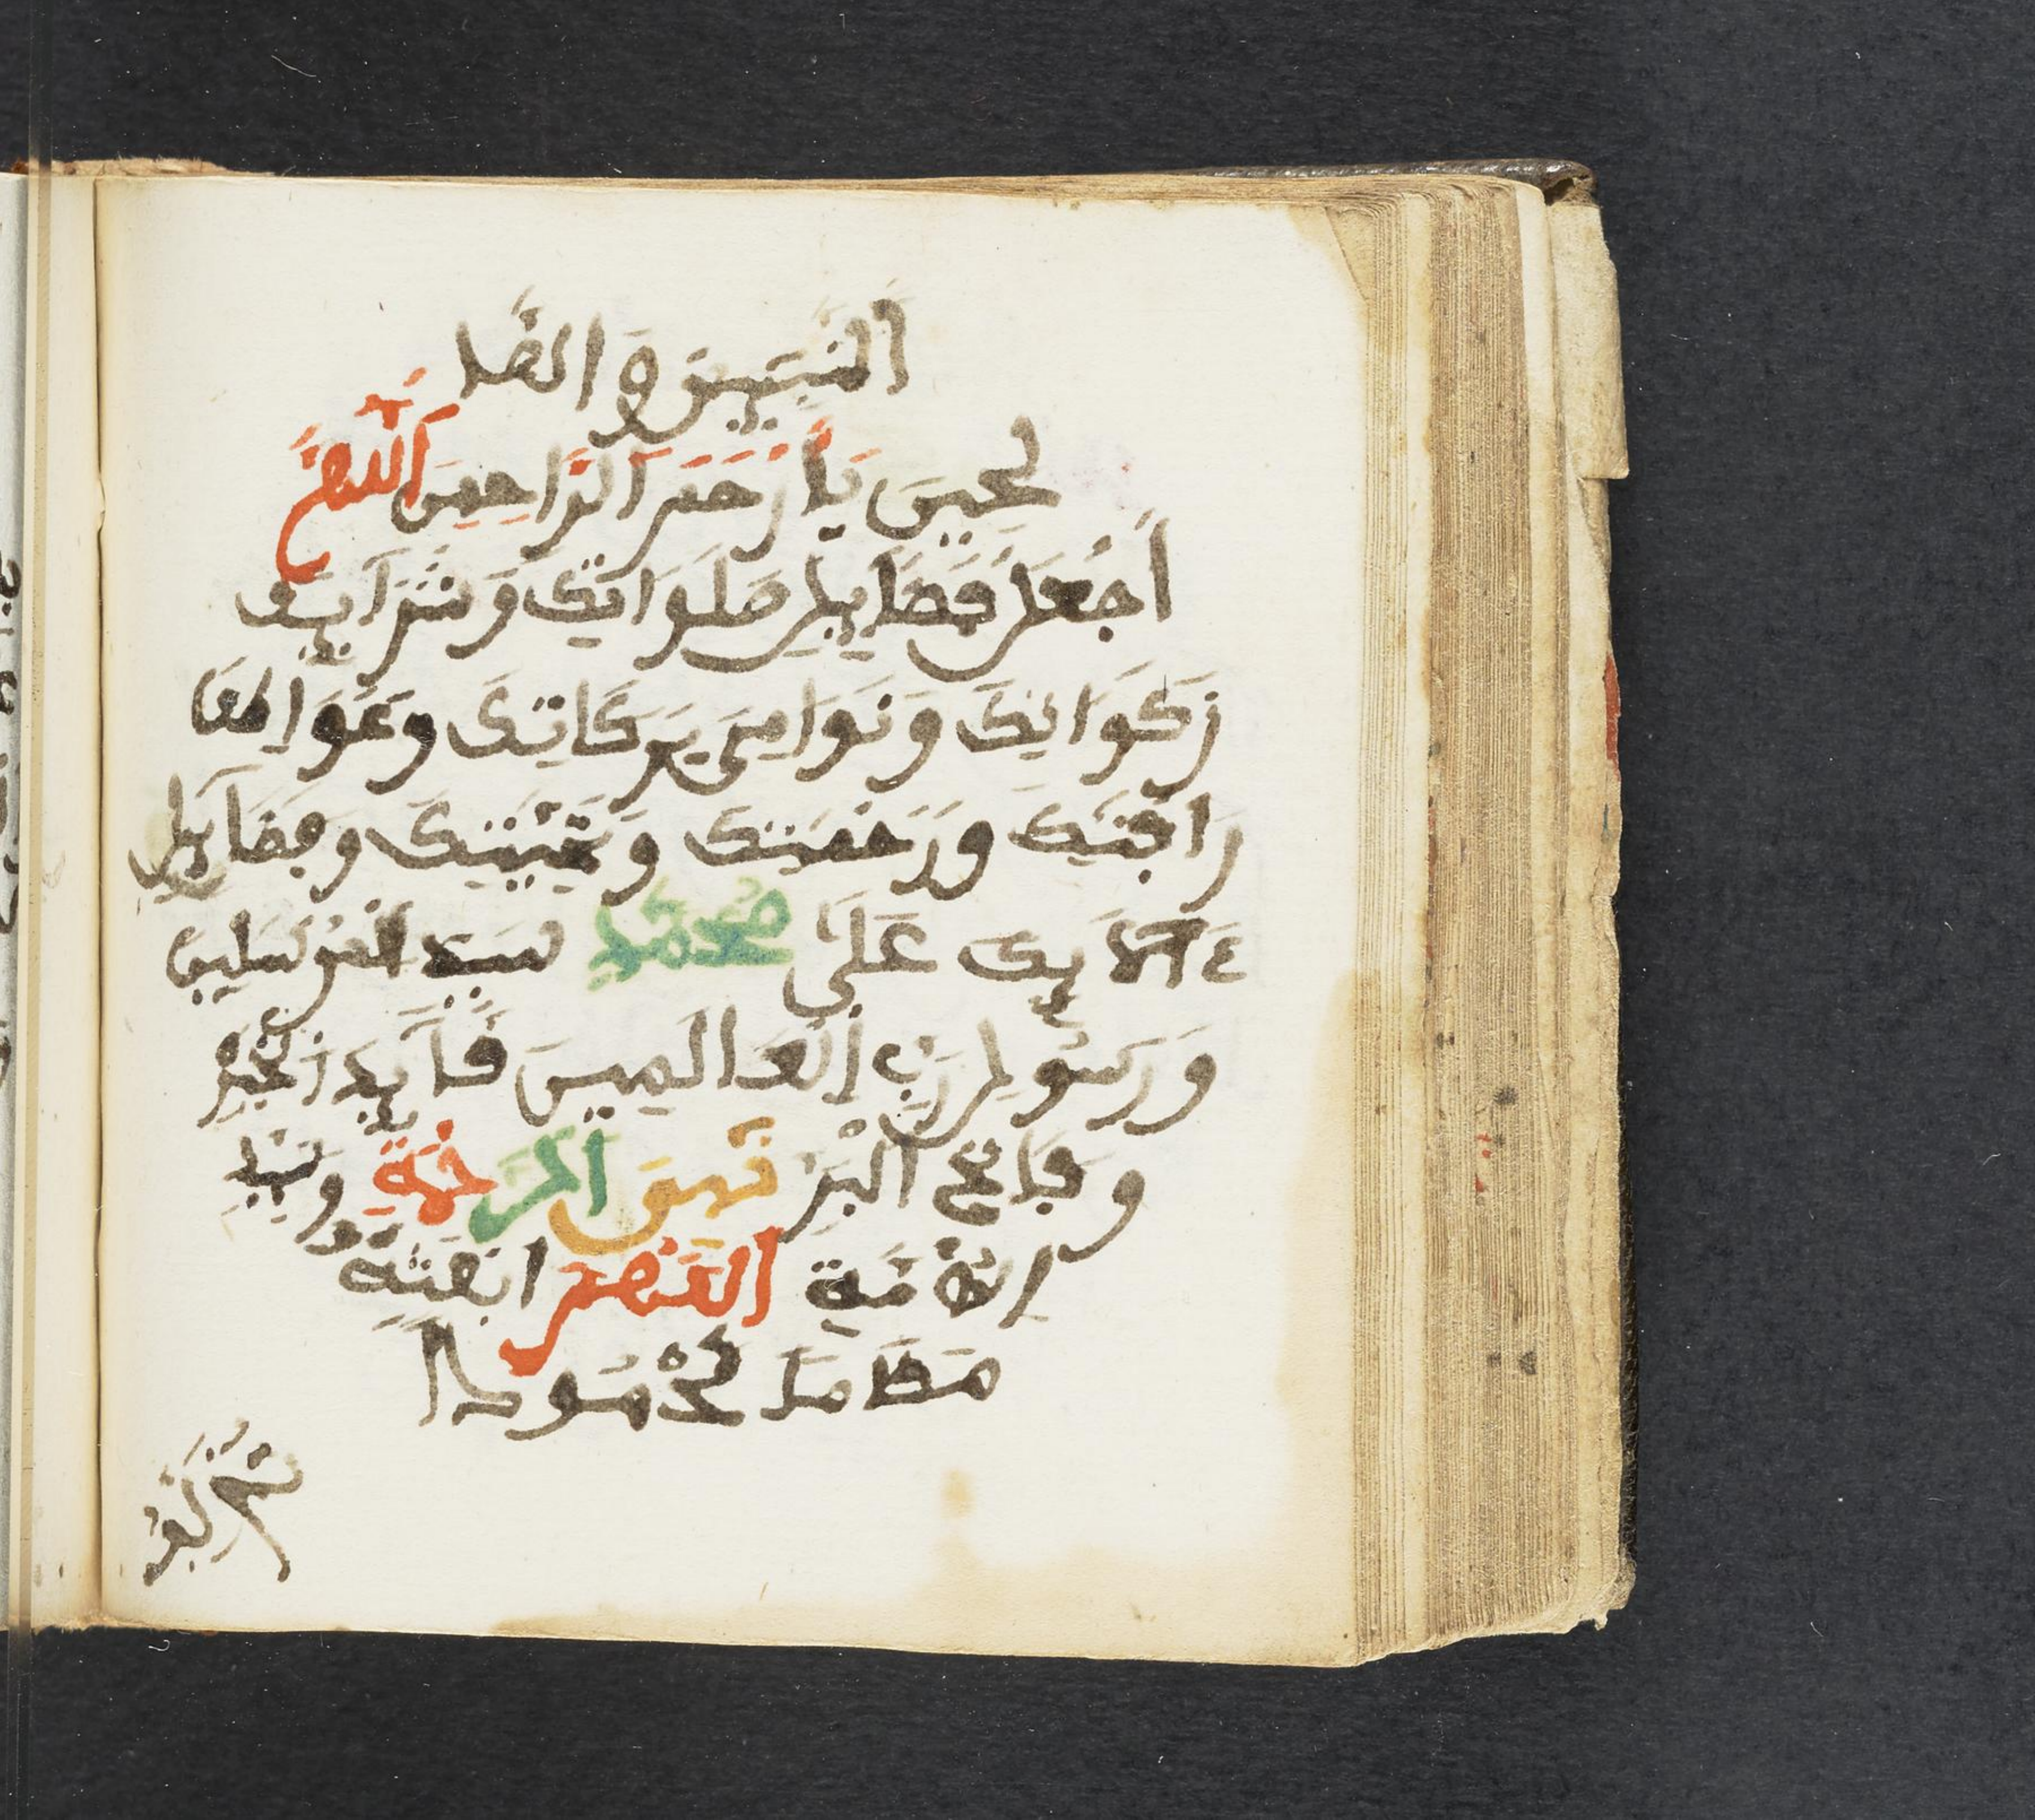 النَّبِيِّينَ وَالصَّا
لِحِينَ يَا أَرْحَمَ الرَّاحِمِينَ اللَّهُمَّ
اجْعَلْ فَضَايِلَ صَلَوَاتِكَ وَشَرَايِفَ
زَكَوَاتِكَ وَنَوَامِيَ بَرَكَاتِكَ وَعَوَاطِفَ
رَافَتِكَ وَرَحْمَتِكَ وَتَحِيَّتِكَ وَفَضَايِلَ
ءَالَايِكَ عَلَى مُحَمَّدٍ سَيِّدِ الْمُرْسَلِينَ
وَرَسُولِ رَبِّ الْعَالَمِينَ قَايِدِ الْخَيْرِ
وَفَاتِحِ الْبِرِّ نَبِيِّ الرَّحْمَةِ وَسَيِّدِ
الْأُمَّةِ اللَّهُمَّ ابْعَثْهُ
مَقَامًا مَحْمُودًا